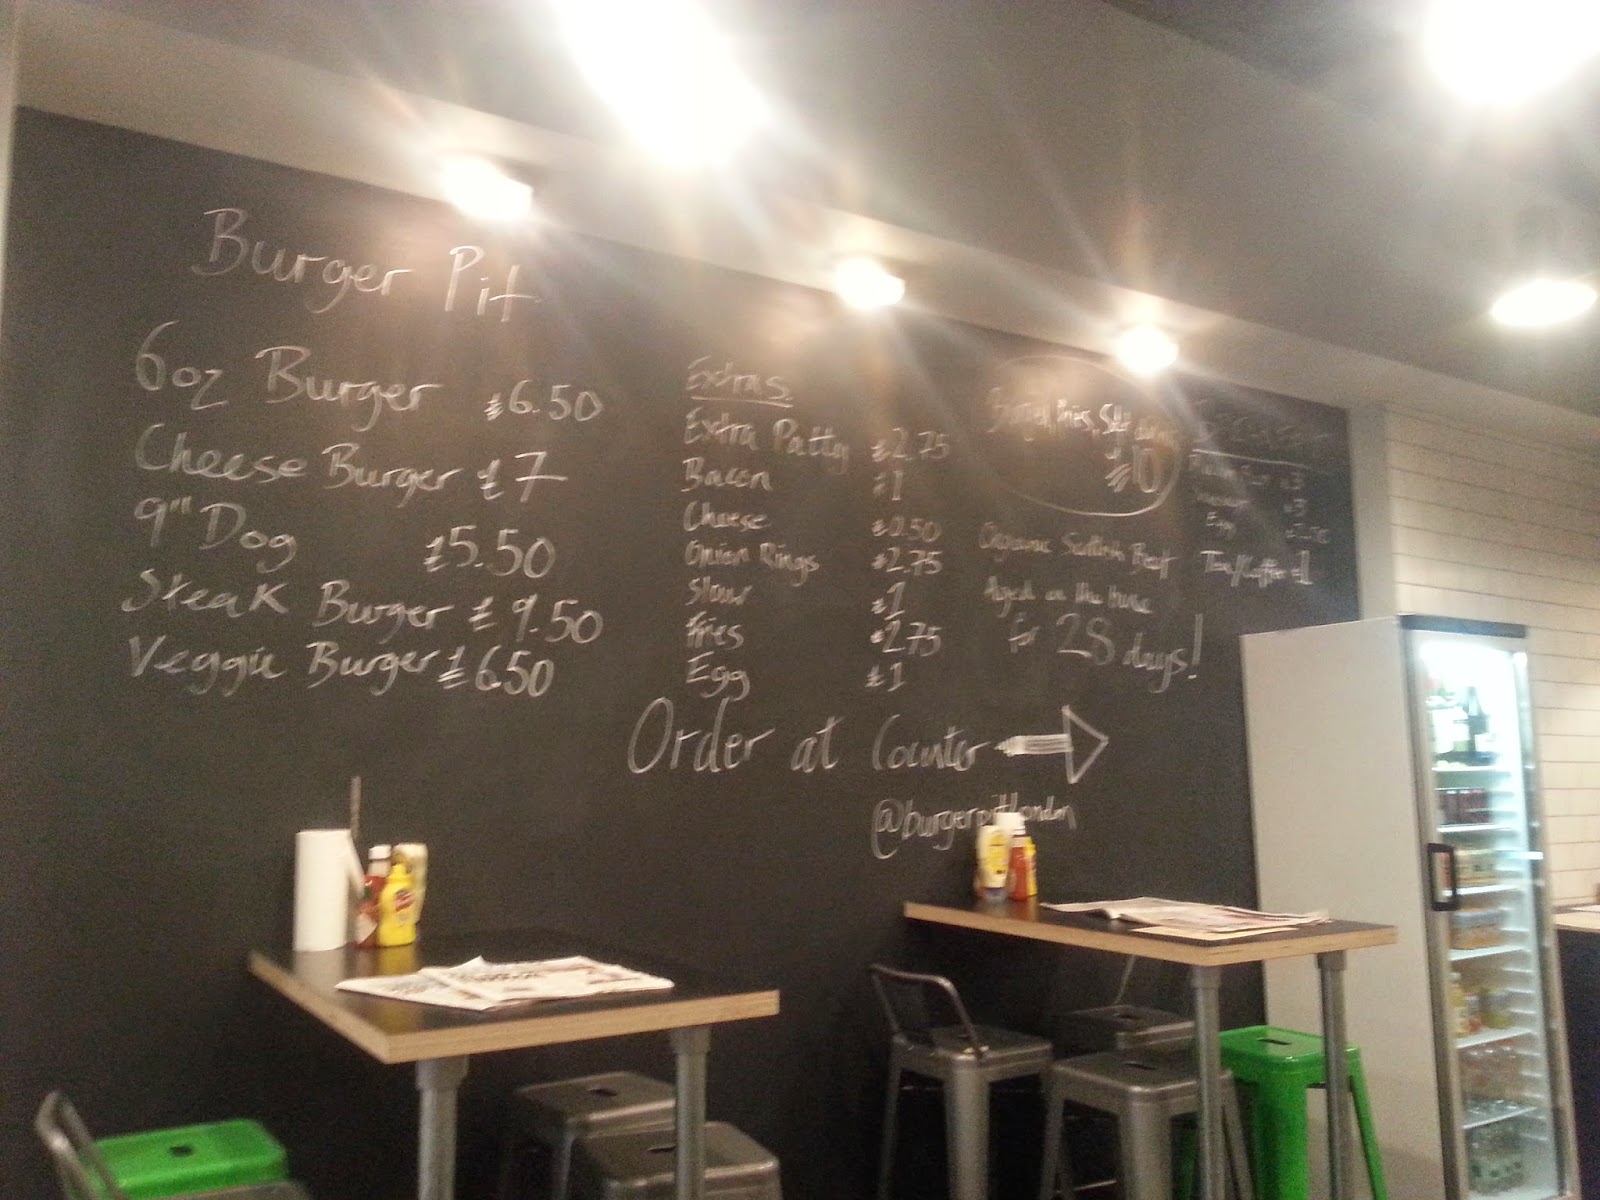 Burger Pit
6oz Burger £6.50
Cheese Burger £7
9" Dog £5.50
Steak Burger £9.50
Veggie Burger £6.50
Extras
Extra Patty £2.75
Bacon £1
Cheese £0.50
Onion Rings £2.75
Slaw £1
Fries £2.75
Egg £1
Burger, Fries, Soft
£10
Organic Scottish Beef
Aged on the bone
for 28 days!
£3
£3
Egg
Tea/Coffee £1
Order at Counter
@burgerpitlondn